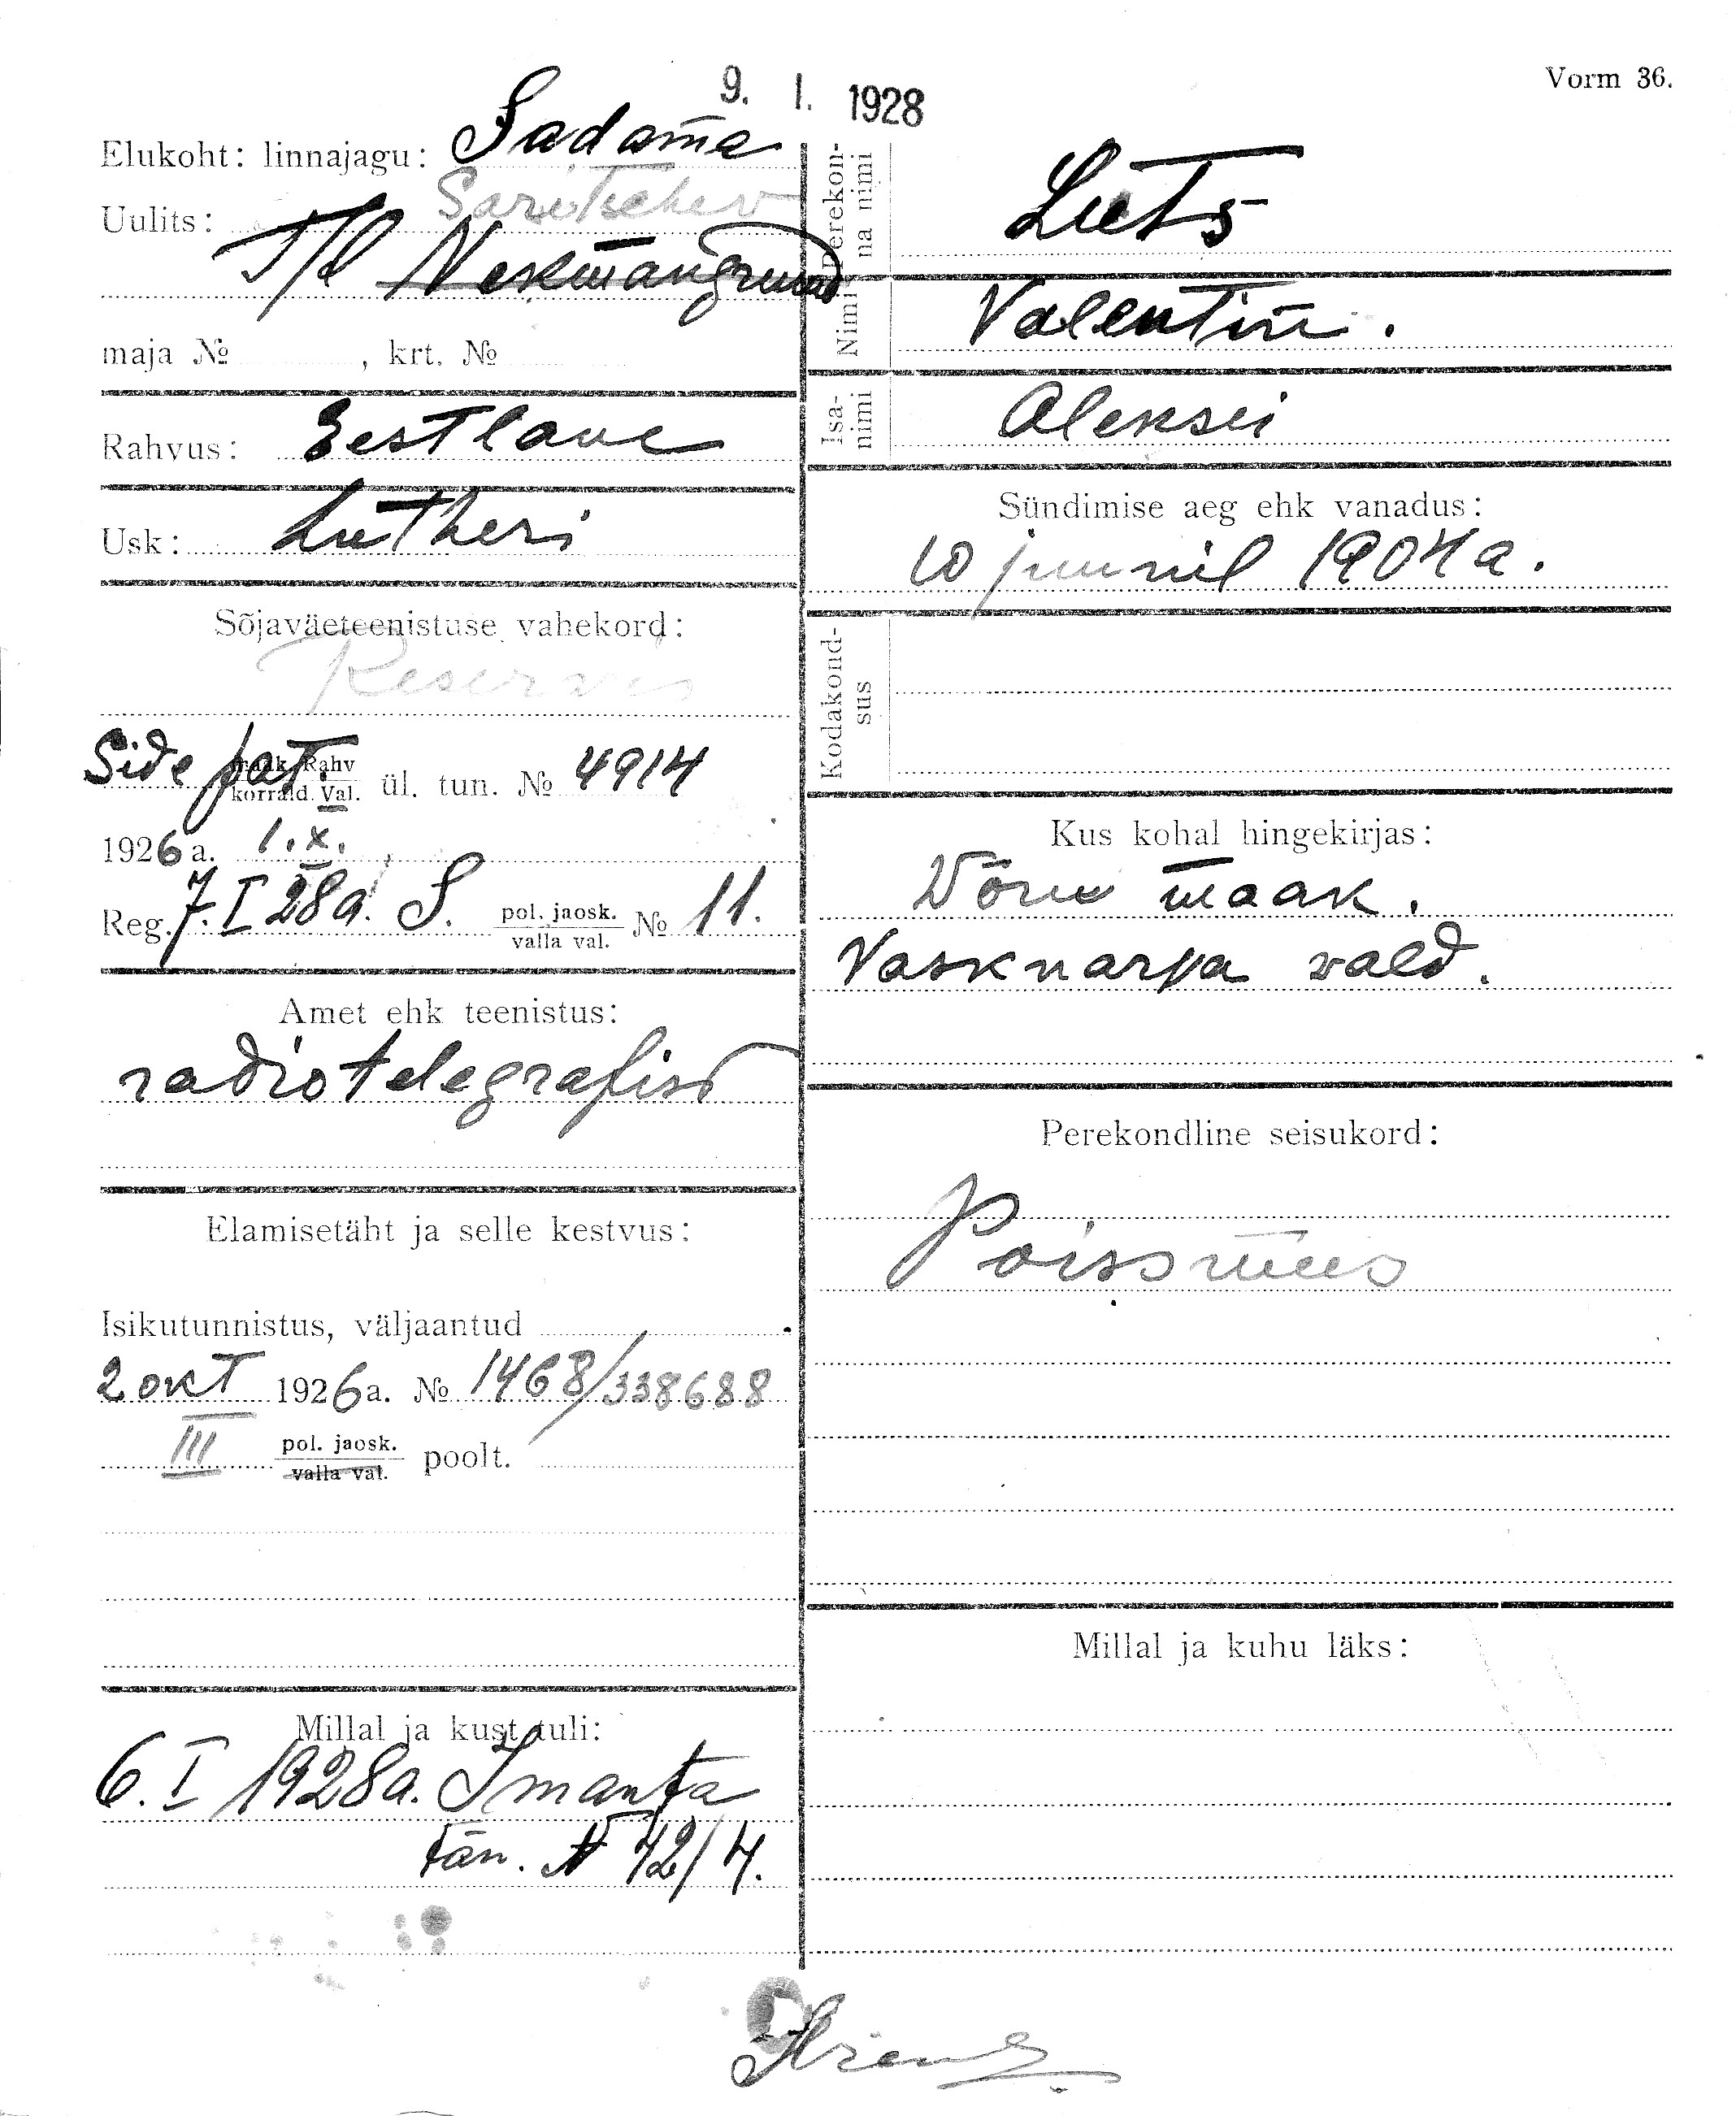 9. I. 1928
Vorm 36.
Elukoht: linnajagu: Sadama
Uulits: Saritschev
T/l Nekmangrund
maja № , krt. №
Rahvus: Eestlane
Usk: Lutheri
Sõjaväeteenistuse vahekord:
Reservis
Side pat. korrald. Val. Rahv ül. tun. № 4914
1926 a. 1.X.
Reg. 7.I 28a. S. pol. jaosk. valla val. № 11.
Amet ehk teenistus:
radiotelegrafist
Elamisetäht ja selle kestvus:
Isikutunnistus, väljaantud
2 okt 1926 a. № 1468/338688
III pol. jaosk. valla val. poolt.
Millal ja kust tuli:
6. I 1928a. Imanta
tän. № 42/4.
Perekonna nimi
Luts
Nimi
Valentin.
Isanimi
Aleksei
Sündimise aeg ehk vanadus:
10 juunil 1904 a.
Kodakondsus
Kus kohal hingekirjas:
Võru maak.
Vasknarva vald.
Perekondline seisukord:
Poissmees
Millal ja kuhu läks: